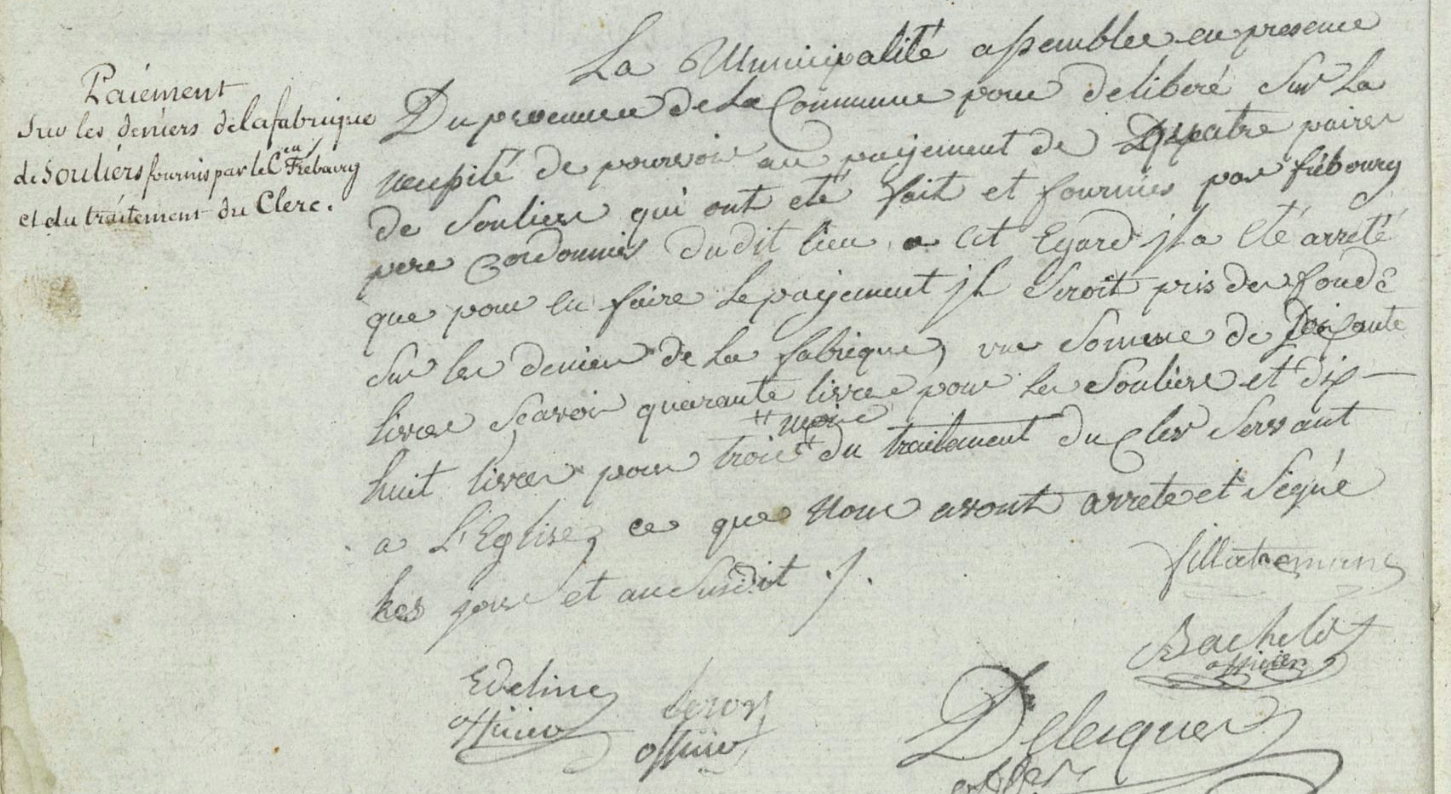 Paiement
Sur les deniers de la fabrique
de Souliers fournis par le C.en Frébourg
et du traitement du Clerc.
La Municipalité assemblée en presence
Du procureur de La Commune pour deliberé Sur La
necessité de pourvoir au payement de Quatre paires
de Soulier qui ont eté fait et fournies par frébourg
pere Cordonnier dudit lieu, a Cet Egard jl a eté arreté
que pour en faire Le payement jl Seroit pris des fond
Sur les denier de La fabrique, une Somme de
livres Scavoir quarante livres pour les Souliers et dix
huit livres pour trois mois du traitement du Cler Servant
a L'Eglise, ce que Nous avont arreté et Signé
Les jour et an Susdit ./.
Bachelet
officier
Edeline
officier
Leroy
officier